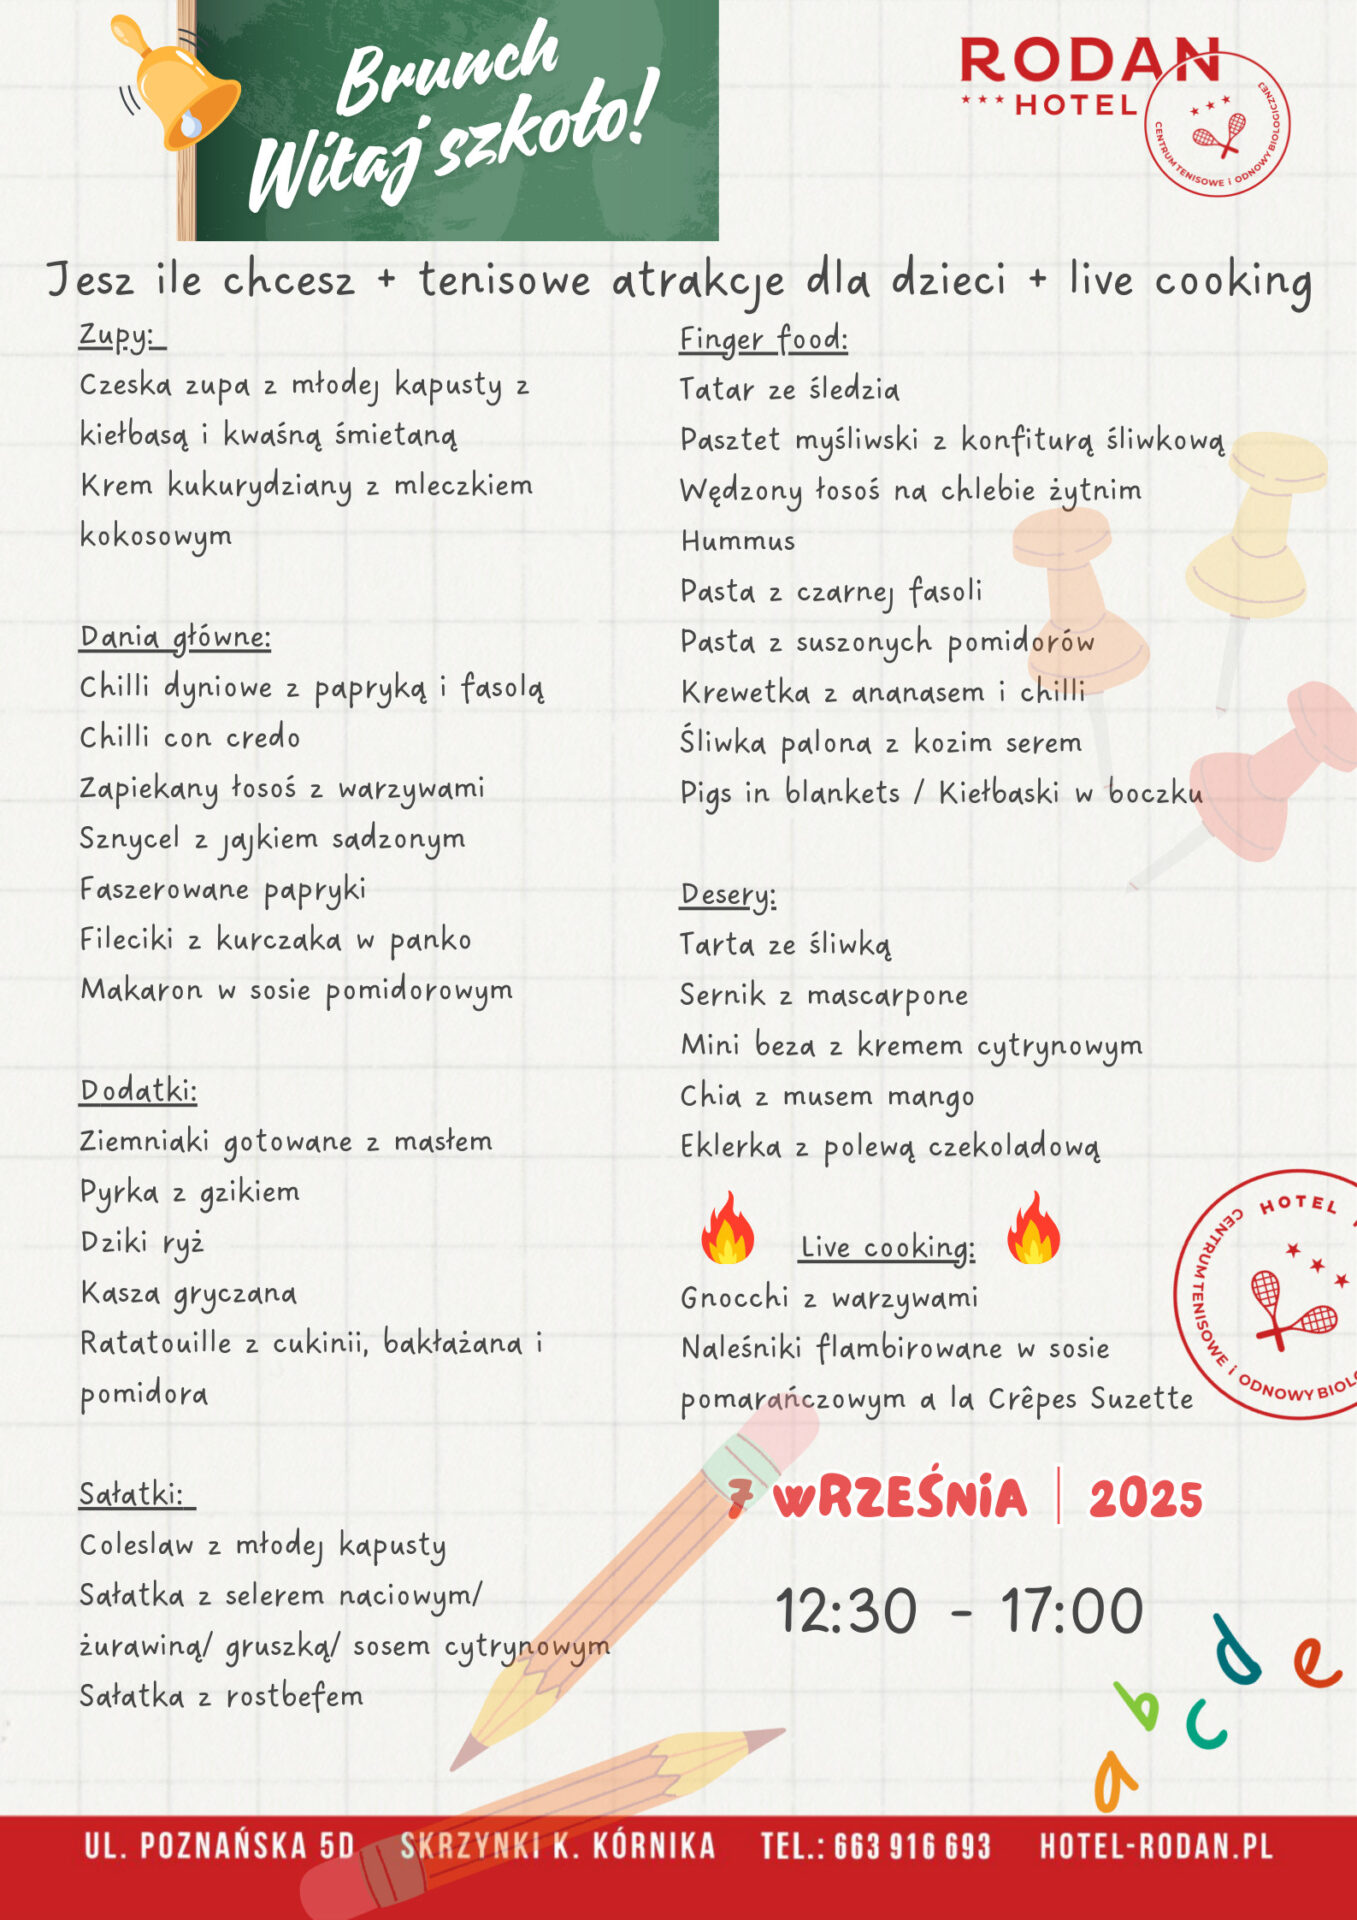 Brunch
Witaj szkoło!
RODAN
HOTEL
CENTRUM TENISOWE i ODNOWY BIOLOGICZNEJ
Jesz ile chcesz + tenisowe atrakcje dla dzieci + live cooking
Zupy:
Czeska zupa z młodej kapusty z
kiełbasą i kwaśną śmietaną
Krem kukurydziany z mleczkiem
kokosowym
Dania główne:
Chilli dyniowe z papryką i fasolą
Chilli con credo
Zapiekany łosoś z warzywami
Sznycel z jajkiem sadzonym
Faszerowane papryki
Fileciki z kurczaka w panko
Makaron w sosie pomidorowym
Dodatki:
Ziemniaki gotowane z masłem
Pyrka z gzikiem
Dziki ryż
Kasza gryczana
Ratatouille z cukinii, bakłażana i
pomidora
Sałatki:
Coleslaw z młodej kapusty
Sałatka z selerem naciowym/
żurawiną/ gruszką/ sosem cytrynowym
Sałatka z rostbefem
Finger food:
Tatar ze śledzia
Pasztet myśliwski z konfiturą śliwkową
Wędzony łosoś na chlebie żytnim
Hummus
Pasta z czarnej fasoli
Pasta z suszonych pomidorów
Krewetka z ananasem i chilli
Śliwka palona z kozim serem
Pigs in blankets / Kiełbaski w boczku
Desery:
Tarta ze śliwką
Sernik z mascarpone
Mini beza z kremem cytrynowym
Chia z musem mango
Eklerka z polewą czekoladową
Live cooking:
Gnocchi z warzywami
Naleśniki flambirowane w sosie
pomarańczowym a la Crêpes Suzette
HOTEL
CENTRUM TENISOWE i ODNOWY BIOLO
7 wRZEŚNiA | 2025
12:30 - 17:00
a b c d e
UL. POZNAŃSKA 5D SKRZYNKI K. KÓRNIKA TEL.: 663 916 693 HOTEL-RODAN.PL